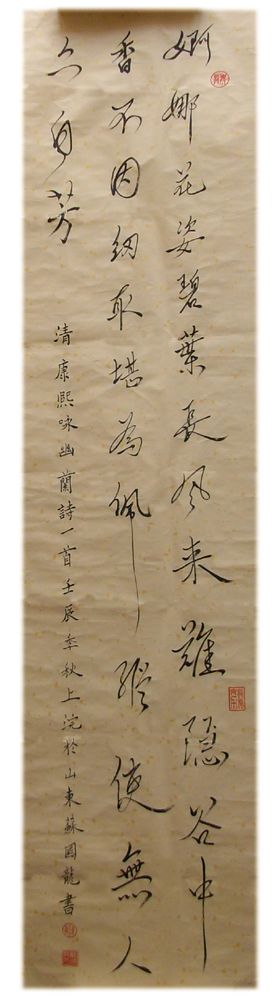 婀娜花姿碧葉長风来難隐谷中
香不因纫取堪為佩縱使無人
亦自芳
清康熙咏幽蘭詩一首壬辰年秋上浣於山東蘇國龍書